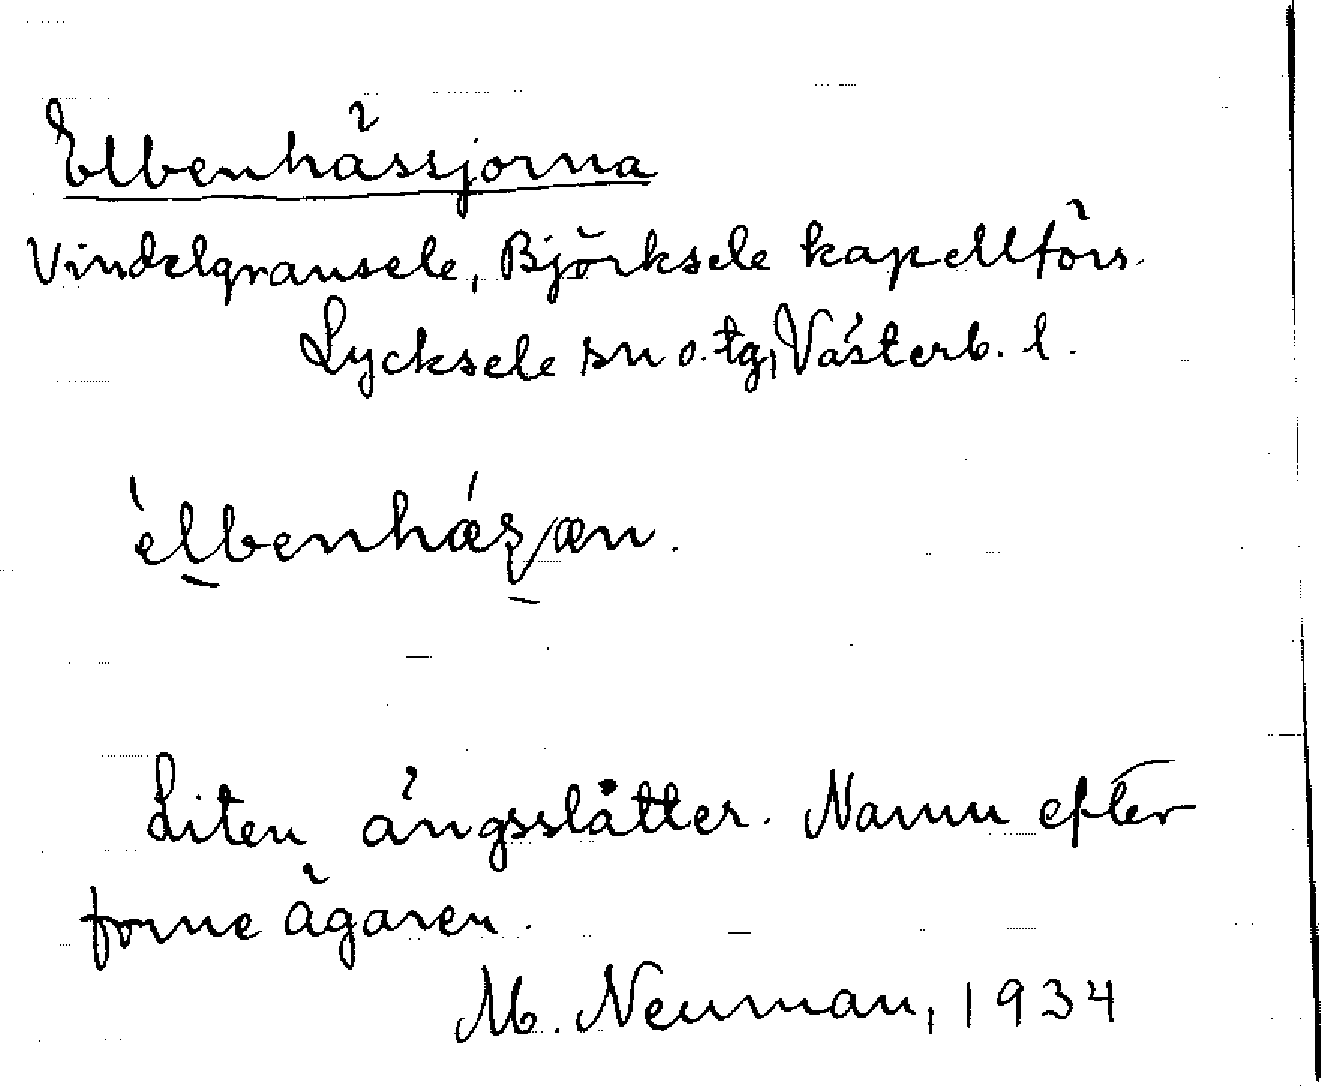 Elbenhässjorna
Vindelgransele, Björksele kapellförs.
Lycksele sn o. tg, Västerb. l.
Liten ängsslåtter. Namn efter
forne ägaren.
M. Neuman, 1934